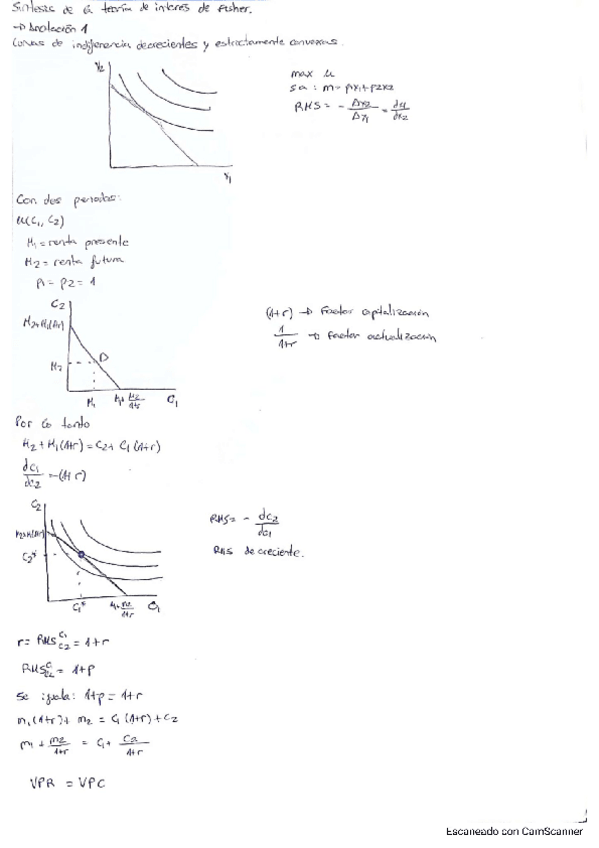 Síntesis de la teoría de interés de Fisher.
→ Anotación 1
Curvas de indiferencia decrecientes y estrictamente convexas.
Y2
Y1
max u
sa: m = p1x1 + p2x2
RMS = - Δx2/Δx1 =
Con dos periodos:
u(C1, C2)
M1 = renta presente
M2 = renta futura
P1 = P2 = 1
C2
M2+M1(1+r)
M2
D
M1
M1+ M2/1+r
C1
(1+r) → Factor capitalización
1/1+r → factor actualización
Por lo tanto
M2 + M1(1+r) = C2 + C1(1+r)
dc1/dc2 = -(1+r)
C2
M2+M1(1+r)
C2*
C1*
M1+ m2/1+r
C1
RMS = - dc2/dc1
RMS decreciente.
r = RMS C1 C2 = 1+r
RMS C1 C2 = 1+p
Se iguala: 1+p = 1+r
m1(1+r) + m2 = C1(1+r) + C2
m1 + m2/1+r = C1 + C2/1+r
VPR = VPC
Escaneado con CamScanner